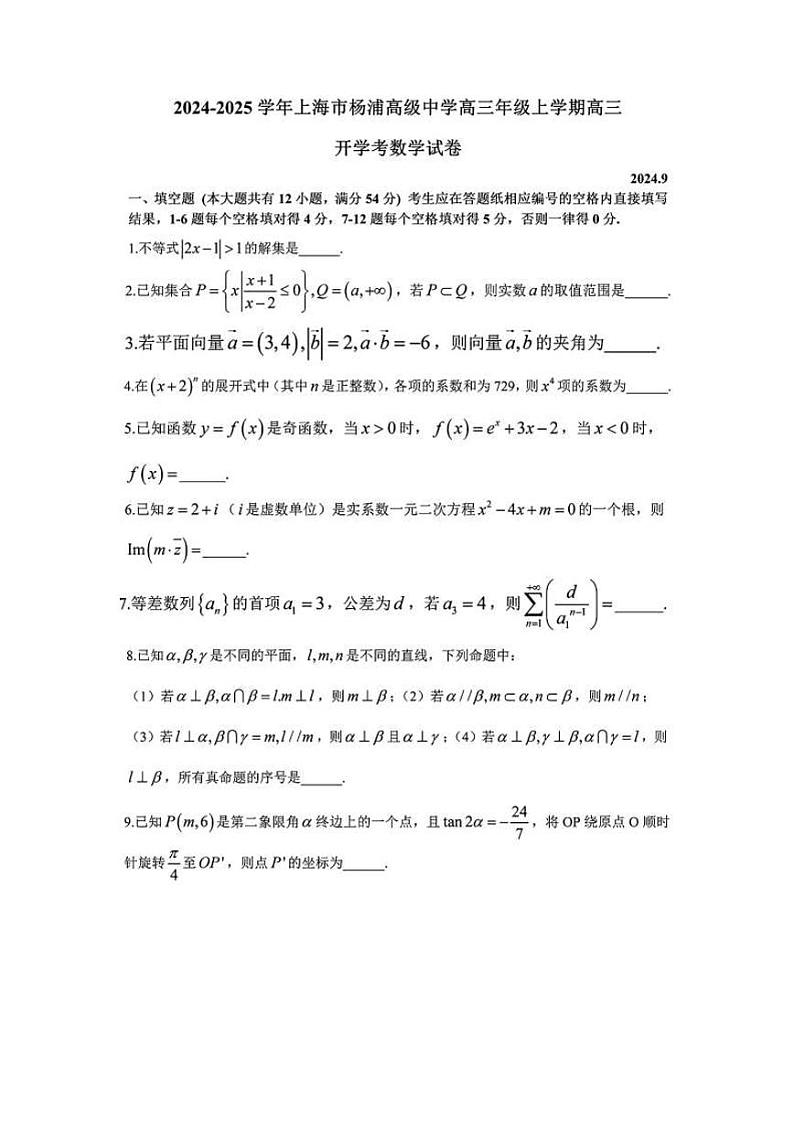 2024-2025 学年上海市杨浦高级中学高三年级上学期高三
开学考数学试卷
2024.9
一、填空题 (本大题共有 12 小题，满分 54 分) 考生应在答题纸相应编号的空格内直接填写
结果，1-6 题每个空格填对得 4 分，7-12 题每个空格填对得 5 分，否则一律得 0 分．
1.不等式|2x−1|>1的解集是______.
2.已知集合P={x|(x+1)/(x−2)≤0},Q=(a,+∞)，若P⊂Q，则实数a的取值范围是______.
3.若平面向量a⃗=(3,4),|b⃗|=2,a⃗·b⃗=−6，则向量a⃗,b⃗的夹角为______.
4.在(x+2)ⁿ的展开式中(其中n是正整数)，各项的系数和为 729，则x⁴项的系数为______.
5.已知函数y=f(x)是奇函数，当x>0时，f(x)=eˣ+3x−2，当x<0时，
f(x)=______.
6.已知z=2+i（i是虚数单位）是实系数一元二次方程x²−4x+m=0的一个根，则
Im(m·z̄)=______.
7.等差数列{aₙ}的首项a₁=3，公差为d，若a₃=4，则∑_{n=1}^{+∞}(d/a₁ⁿ⁻¹)=______.
8.已知α,β,γ是不同的平面，l,m,n是不同的直线，下列命题中：
（1）若α⊥β,α⋂β=l.m⊥l，则m⊥β；（2）若α//β,m⊂α,n⊂β，则m//n；
（3）若l⊥α,β⋂γ=m,l//m，则α⊥β且α⊥γ；（4）若α⊥β,γ⊥β,α⋂γ=l，则
l⊥β，所有真命题的序号是______.
9.已知P(m,6)是第二象限角α终边上的一个点，且tan2α=−24/7，将 OP 绕原点 O 顺时
针旋转π/4至OP'，则点P'的坐标为______.